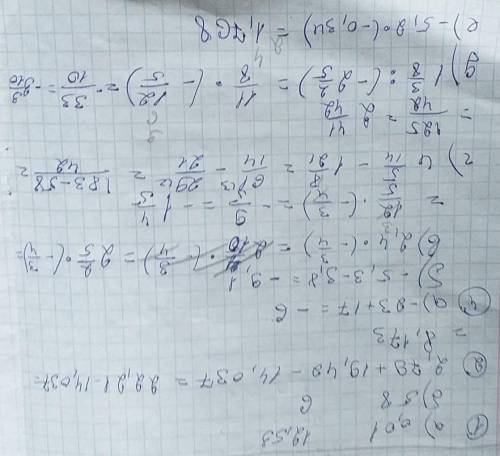 ① a) 0,01 12,53
3) 58 6
② 2,79 + 19,42 - 14,037 = 22,21 - 14,037 =
= 8,173
④ a) -23 + 17 = -6
б) -5,3 - 3,8 = -9,1
в) 2,4 · (-3/4) = 2 4/10 · (-3/4) = 2 2/5 · (-3/4) =
= 12/5 · (-3/4) = -9/5 = -1 4/5
г) 4 5/14 - 1 8/21 = 61/14 - 29/21 = 183-58/42 =
= 125/42 = 2 41/42
д) 1 3/8 : (-2 2/5) = 11/8 · (-12/5) = -33/10 = -3 3/10
е) -5,2 · (-0,34) = 1,768